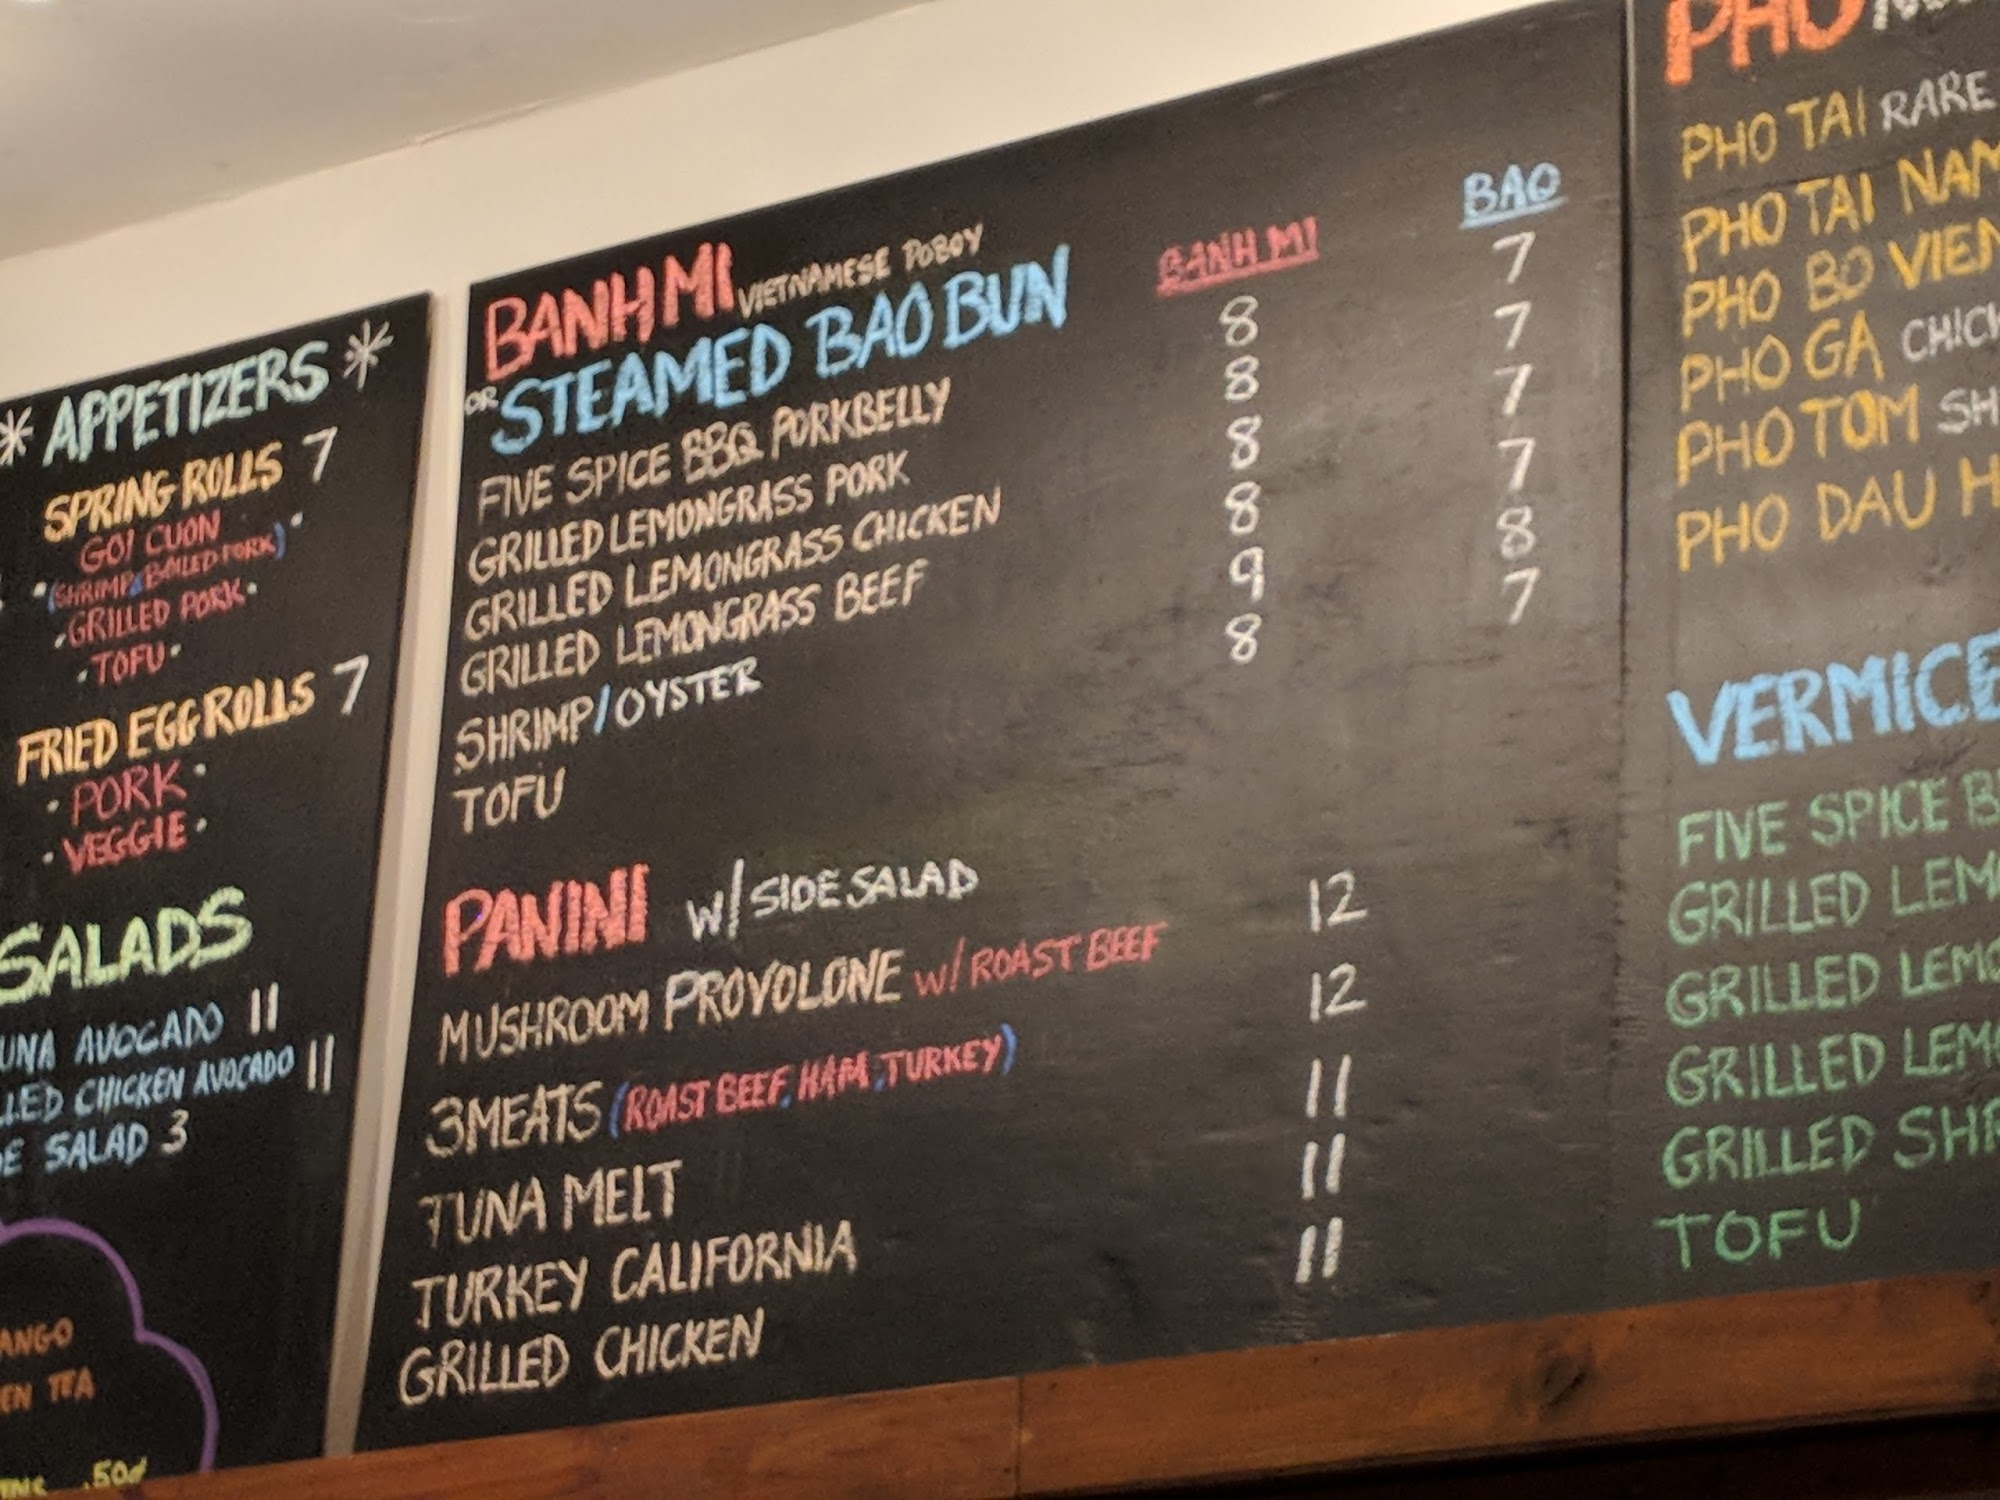 * APPETIZERS *
SPRING ROLLS 7
GOI CUON
(SHRIMP & BOILED PORK)
GRILLED PORK
TOFU
FRIED EGGROLLS 7
PORK
VEGGIE
SALADS
UNA AVOCADO 11
LLED CHICKEN AVOCADO 11
E SALAD 3
ANGO
EN TEA
.50¢
BANH MI VIETNAMESE POBOY
OR STEAMED BAO BUN
BANH MI BAO
FIVE SPICE BBQ PORKBELLY 8 7
GRILLED LEMONGRASS PORK 8 7
GRILLED LEMONGRASS CHICKEN 8 7
GRILLED LEMONGRASS BEEF 8 7
SHRIMP/OYSTER 9 8
TOFU 8 7
PANINI W/ SIDE SALAD
MUSHROOM PROVOLONE W/ ROAST BEEF 12
3 MEATS (ROAST BEEF, HAM, TURKEY) 12
TUNA MELT 11
TURKEY CALIFORNIA 11
GRILLED CHICKEN 11
PHO
PHO TAI RARE
PHO TAI NAM
PHO BO VIEN
PHO GA CHICK
PHO TOM SH
PHO DAU H
VERMICE
FIVE SPICE B
GRILLED LEM
GRILLED LEMO
GRILLED LEMO
GRILLED SHR
TOFU